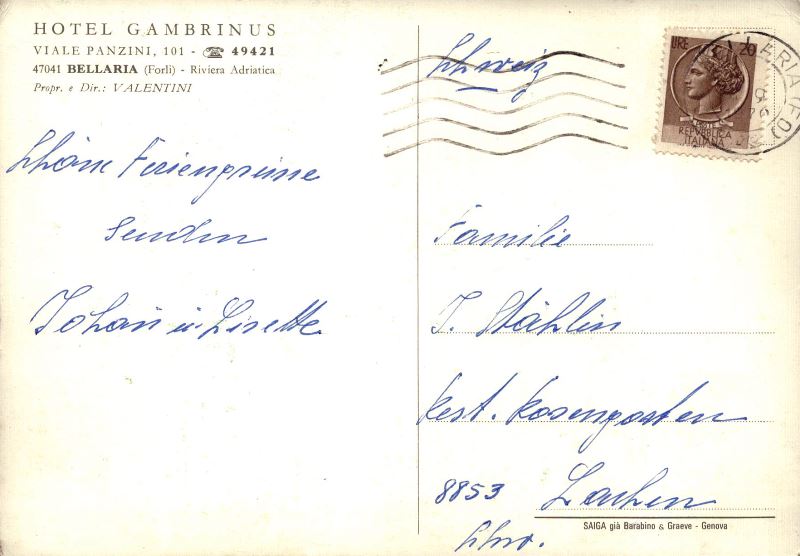 HOTEL GAMBRINUS
VIALE PANZINI, 101 - ☎ 49421
47041 BELLARIA (Forlì) - Riviera Adriatica
Propr. e Dir.: VALENTINI
Schöne Feriengrüsse
senden
Johann u. Lisette
Schweiz
LIRE 20
REPUBBLICA
ITALIANA
Familie
J. Stählin
Rest. Rosengarten
8853 Lachen
Schw.
SAIGA già Barabino & Graeve - Genova